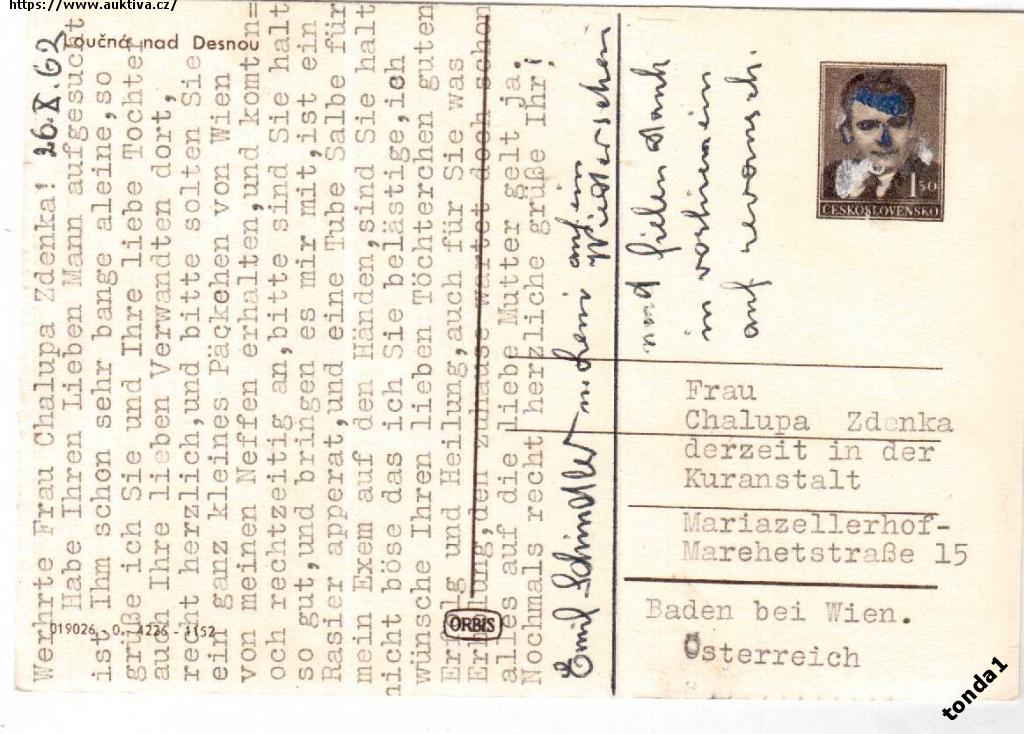 https://www.auktiva.cz/
Loučná nad Desnou
26.X.62
Werhrte Frau Chalupa Zdenka!
Habe Ihren Lieben Mann aufgesucht
ist Ihm schon sehr bange aleine,so
grüße ich Sie und Ihre liebe Tochter
auch Ihre lieben Verwandten dort,
recht herzlich,und bitte solten Sie
ein ganz kleines Päckchen von Wien
von meinen Neffen erhalten,und komt n=
och rechtzeitig an,bitte sind Sie halt
so gut,und bringen es mir mit,ist ein
Rasier apperat,und eine Tube Salbe für
mein Exem auf den Händen,sind Sie halt
nicht böse das ich Sie belästige,ich
wünsche Ihren lieben Töchterchen guten
Erfolg und Heilung,auch für Sie was
Erholung,den zuhause wartet doch schon
alles auf die liebe Mutter gelt ja.
Nochmals recht herzliche grüße Ihr;
Emil Schindler
auf ein
Wiedersehen
und fielen Dank
im vorhinein
auf revansch.
1 50
ČESKOSLOVENSKO
Frau
Chalupa Zdenka
derzeit in der
Kuranstalt
Mariazellerhof-
Marehetstraße 15
Baden bei Wien.
Österreich
ORBIS
019026 0. 4226 - 1152
tonda1